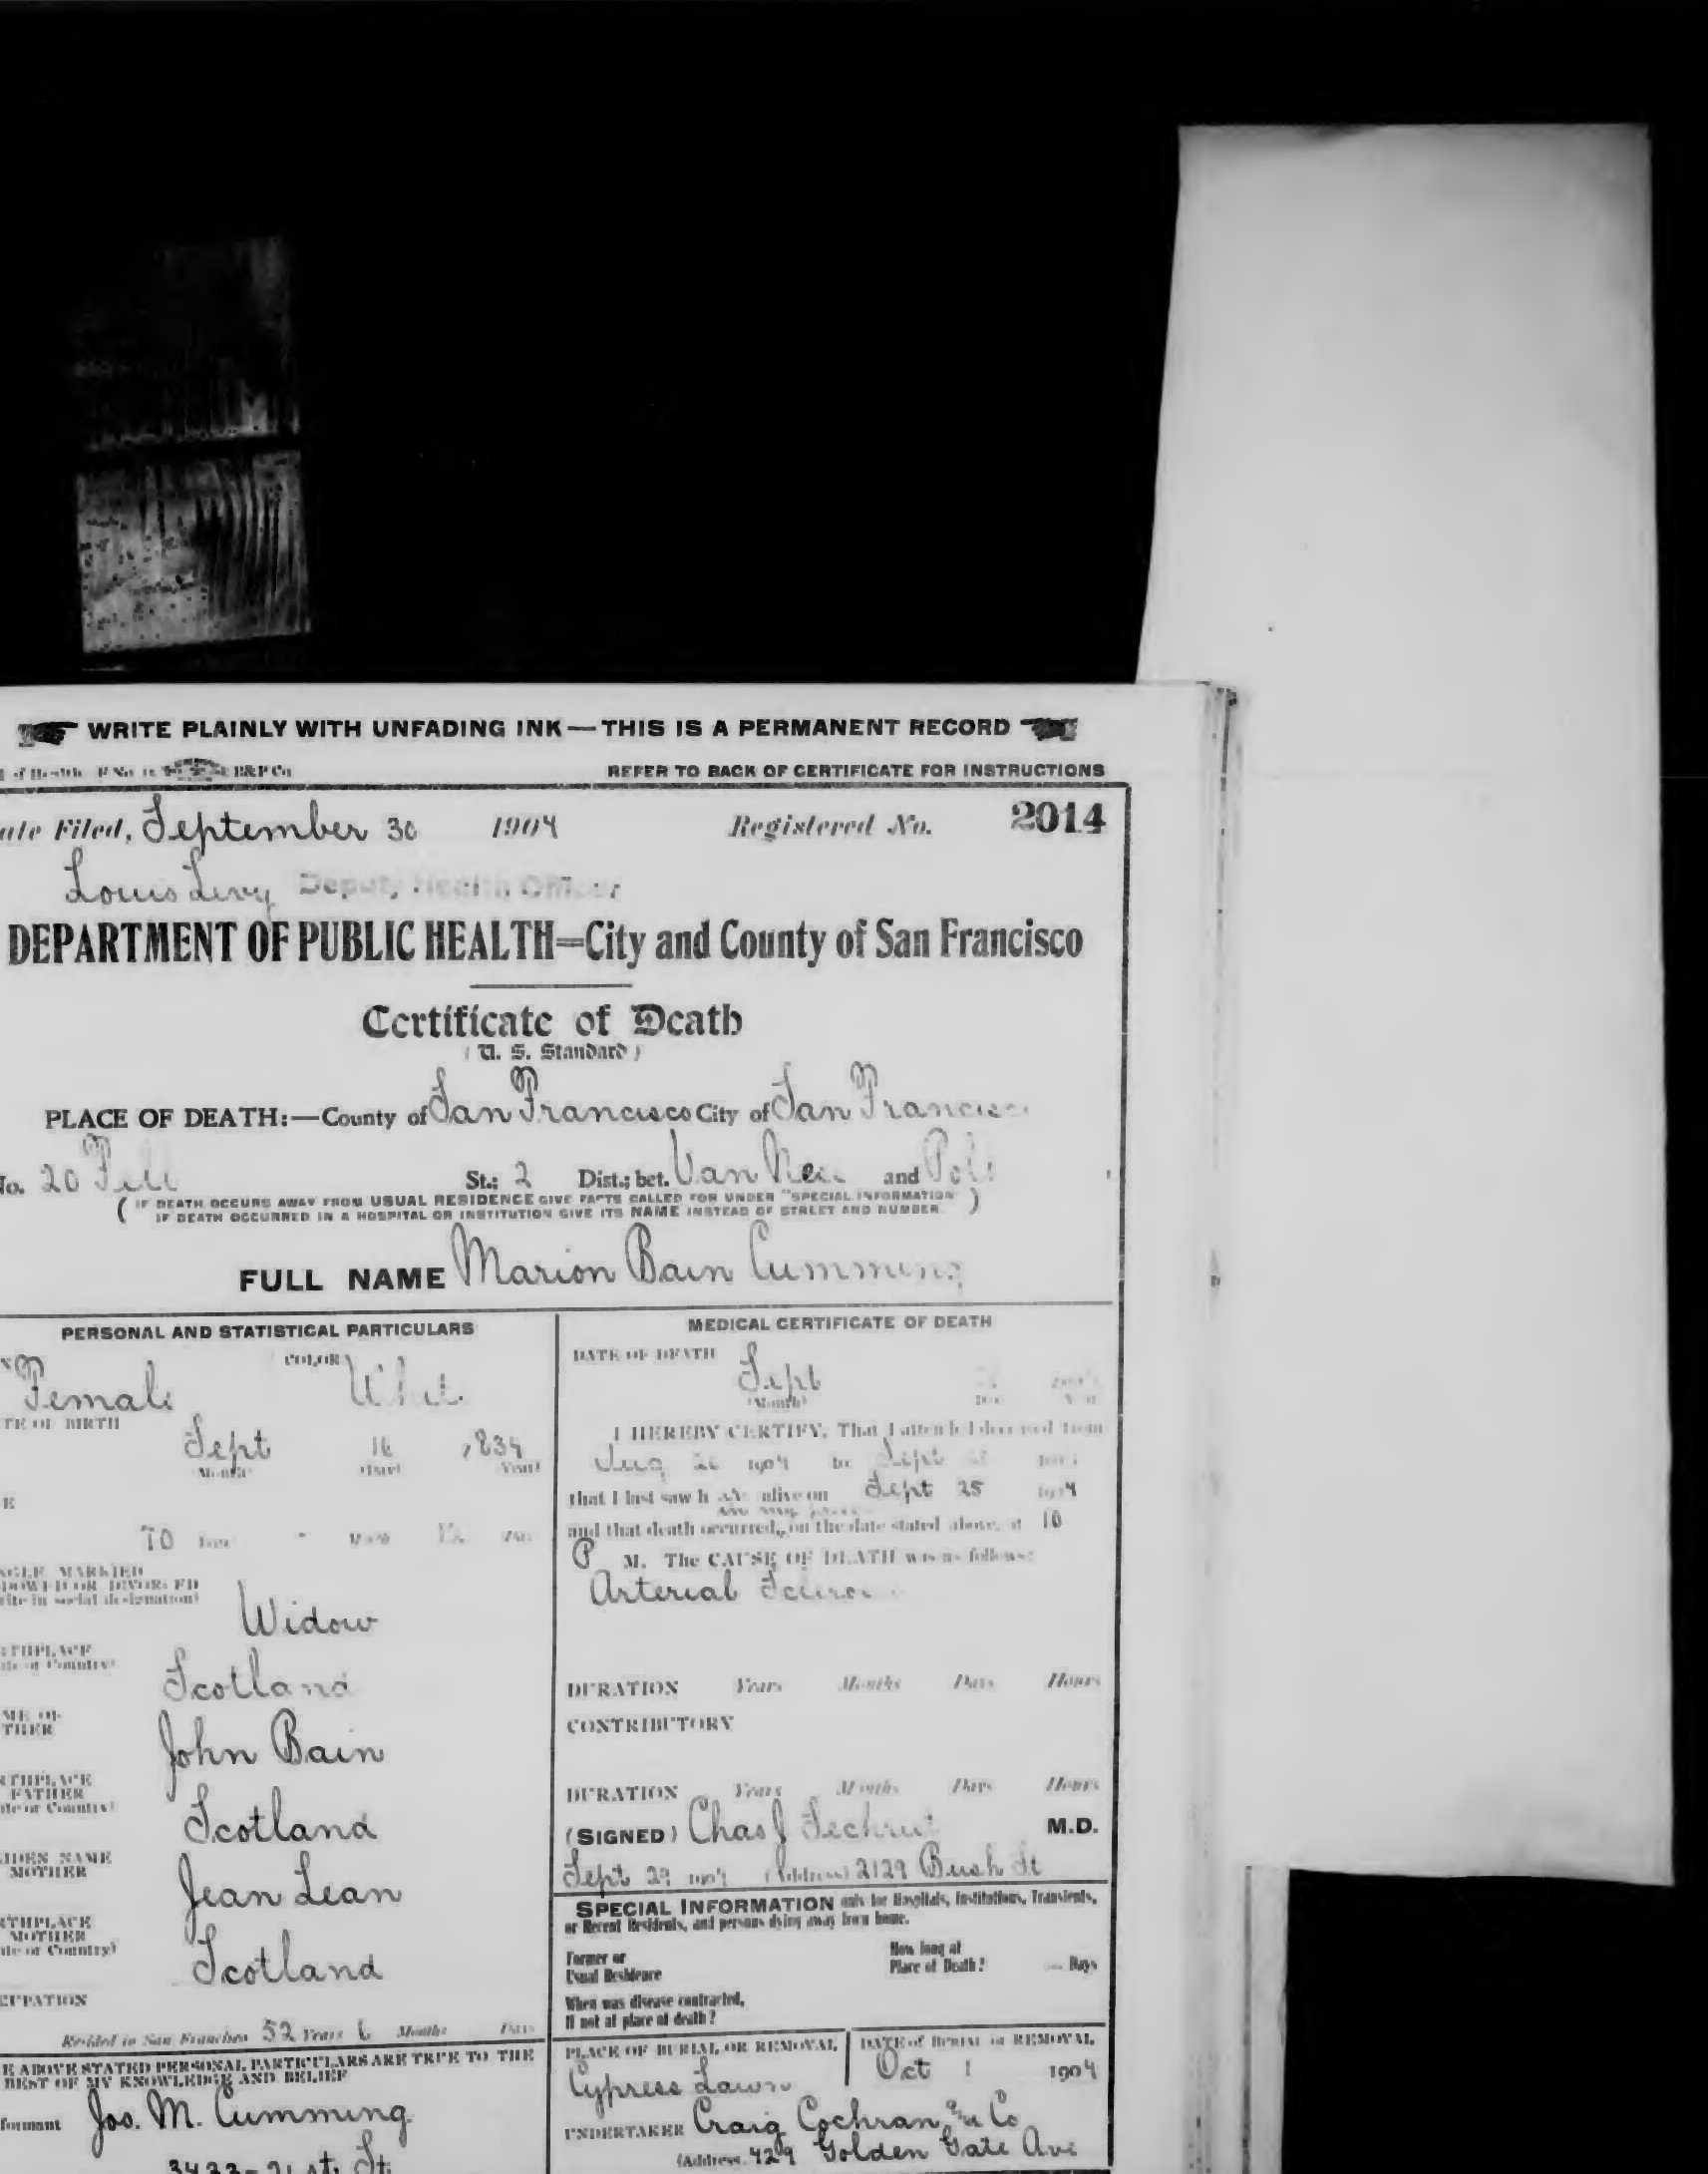 WRITE PLAINLY WITH UNFADING INK — THIS IS A PERMANENT RECORD
of Health B&P Co
REFER TO BACK OF CERTIFICATE FOR INSTRUCTIONS
ate Filed, September 30 1904 Registered No. 2014
Louis Levy Deputy Health Officer
DEPARTMENT OF PUBLIC HEALTH=City and County of San Francisco
Certificate of Death
(U. S. Standard)
PLACE OF DEATH:—County of San Francisco City of San Francisco
No. 20 Fell St.; 2 Dist.; bet. Van Ness and Polk
(IF DEATH OCCURS AWAY FROM USUAL RESIDENCE GIVE FACTS CALLED FOR UNDER "SPECIAL INFORMATION"
IF DEATH OCCURRED IN A HOSPITAL OR INSTITUTION GIVE ITS NAME INSTEAD OF STREET AND NUMBER)
FULL NAME Marion Bain Cumming
PERSONAL AND STATISTICAL PARTICULARS
COLOR
Female White
TE OF BIRTH
Sept 16 1834
Month (Day) (Year)
70
NGLE MARRIED
DOWED OR DIVORCED
rite in social designation)
Widow
RTHPLACE
ate or Country)
Scotland
ME OF
THER
John Bain
RTHPLACE
FATHER
ate or Country)
Scotland
IDEN NAME
MOTHER
Jean Lean
RTHPLACE
MOTHER
ate or Country)
Scotland
CUPATION
Resided in San Francisco 52 Years 6 Months Days
E ABOVE STATED PERSONAL PARTICULARS ARE TRUE TO THE
BEST OF MY KNOWLEDGE AND BELIEF
formant Jos. M. Cumming
3433-21st St.
MEDICAL CERTIFICATE OF DEATH
DATE OF DEATH
Sept
(Month)
I HEREBY CERTIFY, That I attended deceased from
Aug 26 1904 to Sept
that I last saw h alive on Sept 25 1904
and that death occurred, on the date stated above, at 10
P M. The CAUSE OF DEATH was as follows:
Arterial
DURATION Years Months Days Hours
CONTRIBUTORY
DURATION Years Months Days Hours
(SIGNED) Chas M.D.
Sept 29 1904 (Address) 2129 Bush St
SPECIAL INFORMATION only for Hospitals, Institutions, Transients,
or Recent Residents, and persons dying away from home.
Former or
Usual Residence
How long at
Place of Death? Days
When was disease contracted,
If not at place of death?
PLACE OF BURIAL OR REMOVAL
Cypress Lawn
DATE of BURIAL or REMOVAL
Oct 1 1904
UNDERTAKER Craig Cochran & Co
(Address 429 Golden Gate Ave